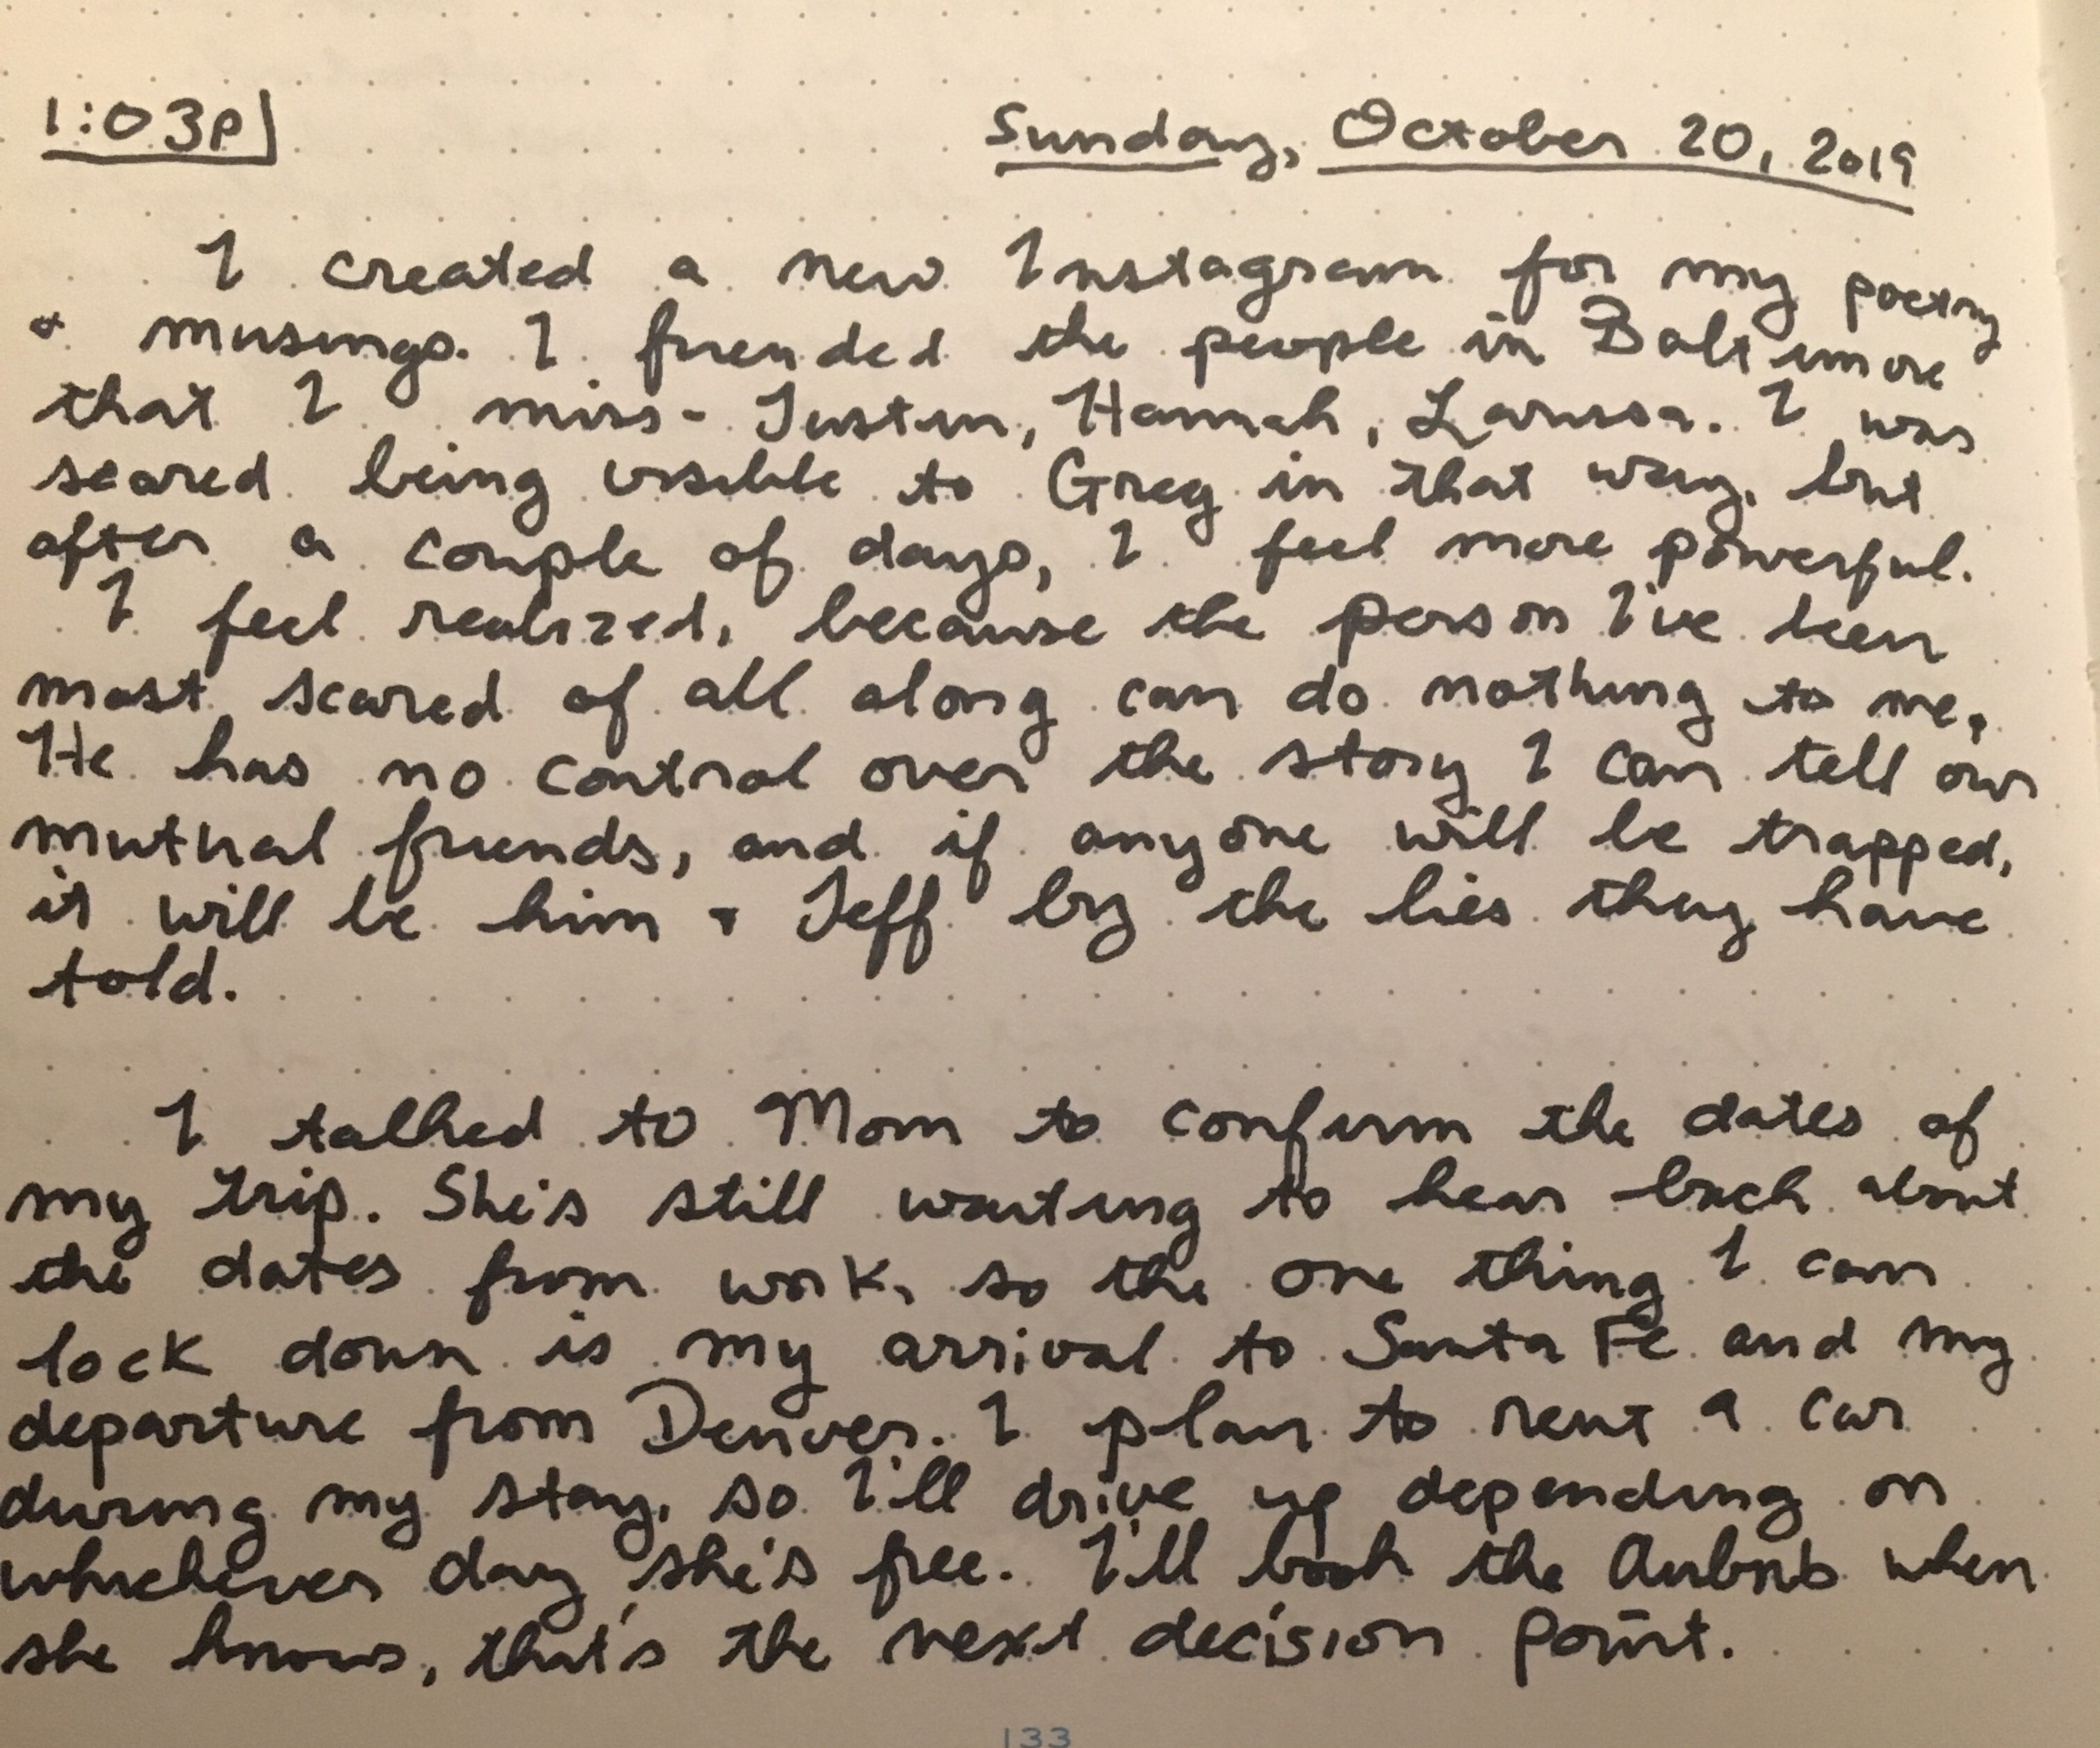 1:03p
Sunday, October 20, 2019
I created a new Instagram for my poetry
& musings. I friended the people in Baltimore
that I miss - Justin, Hannah, Larissa. I was
scared being visible to Greg in that way, but
after a couple of days, I feel more powerful.
I feel realized, because the person I've been
most scared of all along can do nothing to me,
He has no control over the story I can tell our
mutual friends, and if anyone will be trapped,
it will be him & Jeff by the lies they have
told.
I talked to Mom to confirm the dates of
my trip. She's still waiting to hear back about
the dates from work, so the one thing I can
lock down is my arrival to Santa Fe and my
departure from Denver. I plan to rent a car
during my stay, so I'll drive up depending on
whichever day she's free. I'll book the Airbnb when
she knows, that's the next decision point.
133